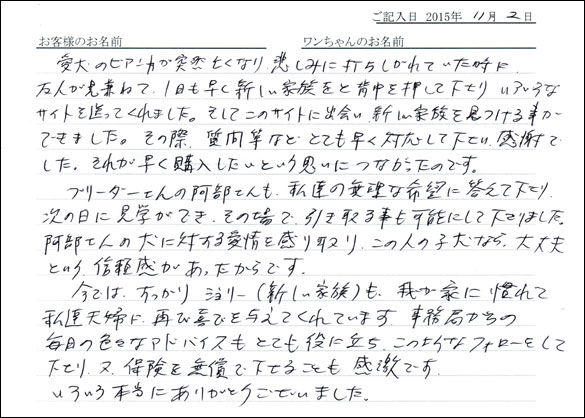 ご記入日 2015年 11月 2日
お客様のお名前 ワンちゃんのお名前
愛犬のビアンカが突然亡くなり、悲しみに打ちしがれていた時に
友人が見兼ねて、1日も早く新しい家族をと背中を押して下さり いろいろな
サイトを送ってくれました。そしてこのサイトに出会い 新しい家族を見つける事が
できました。その際、質問等など とても早く対応して下さい感謝で
した。それが早く購入したいという思いにつながったのです。
ブリーダーさんの阿部さんも、私達の無理な希望に答えて下さり、
次の日に見学ができ、その場で、引き取る事も可能にして下さりました。
阿部さんの犬に対する愛情を感じ取り、この人の子犬なら、大丈夫
という、信頼感があったからです。
今では、すっかり ジョリー(新しい家族)も、我が家に慣れて
私達夫婦に、再び喜びを与えてくれています。事務局からの
毎日の色々なアドバイスもとても役に立ち、このようなフォローをして
下さり、又、保険を無償で下さることも 感激です。
いろいろ本当にありがとうございました。